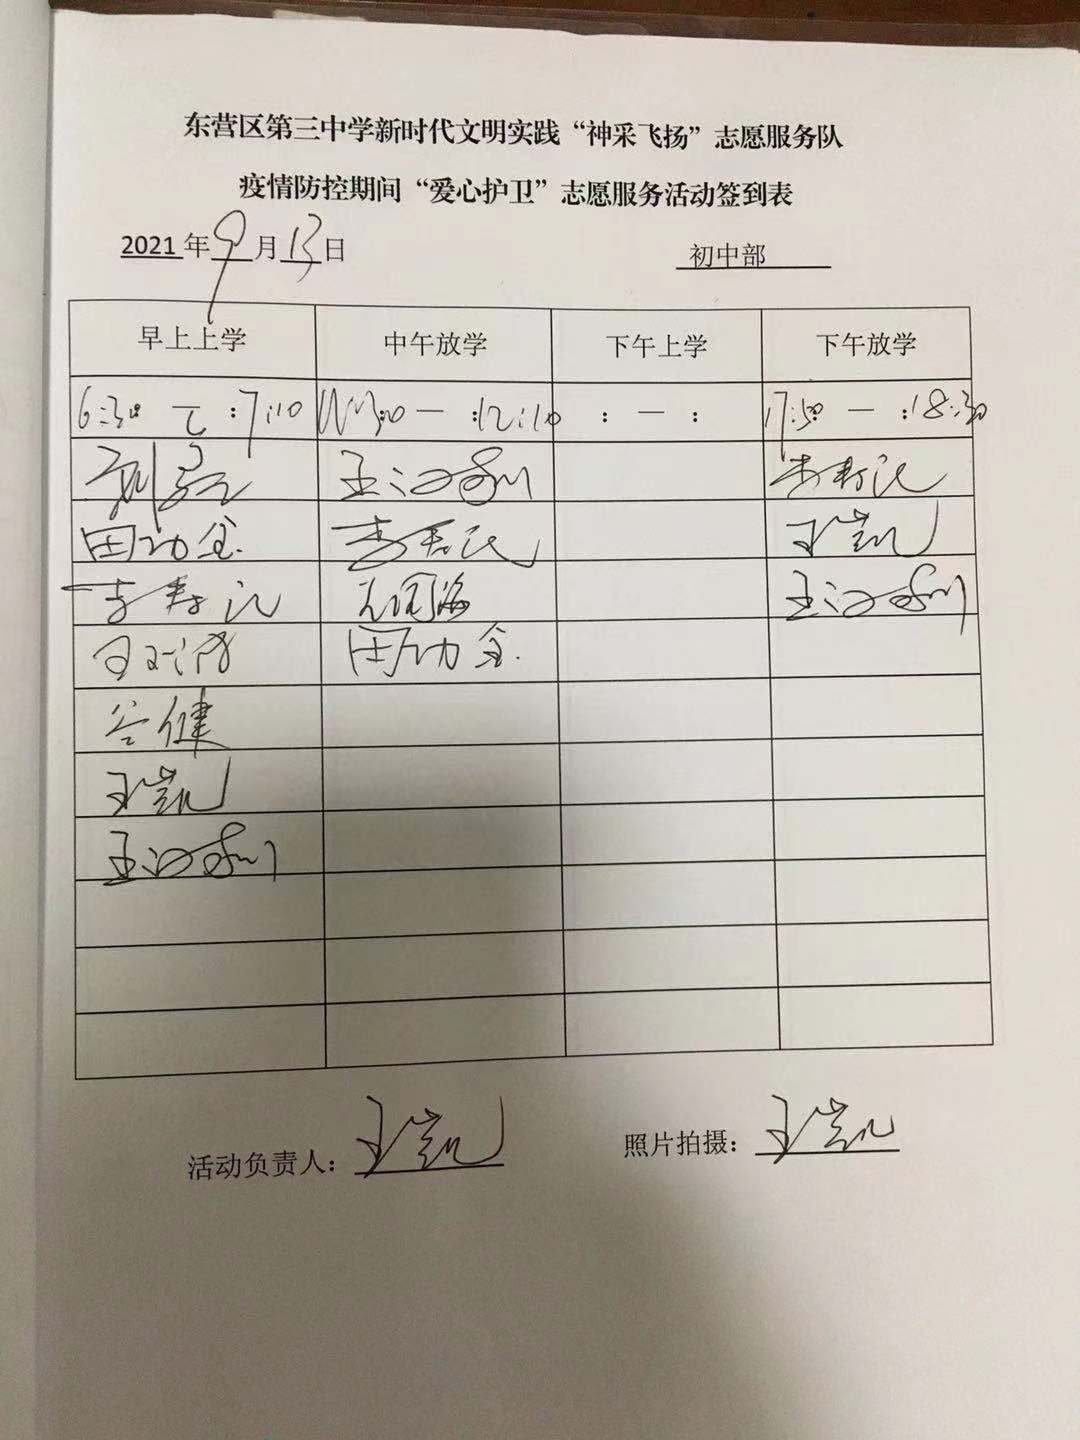 东营区第三中学新时代文明实践“神采飞扬”志愿服务队
疫情防控期间“爱心护卫”志愿服务活动签到表
2021年9月13日 初中部
早上上学 中午放学 下午上学 下午放学
6:30 — :7:10 11:30 — :12:10 : — : 17:50 — :18:30
刘 王汉利 李寿民
田功全 李寿民 王凯
李寿民 王汉利
田功全
谷健
王凯
王汉利
活动负责人：王凯 照片拍摄：王凯